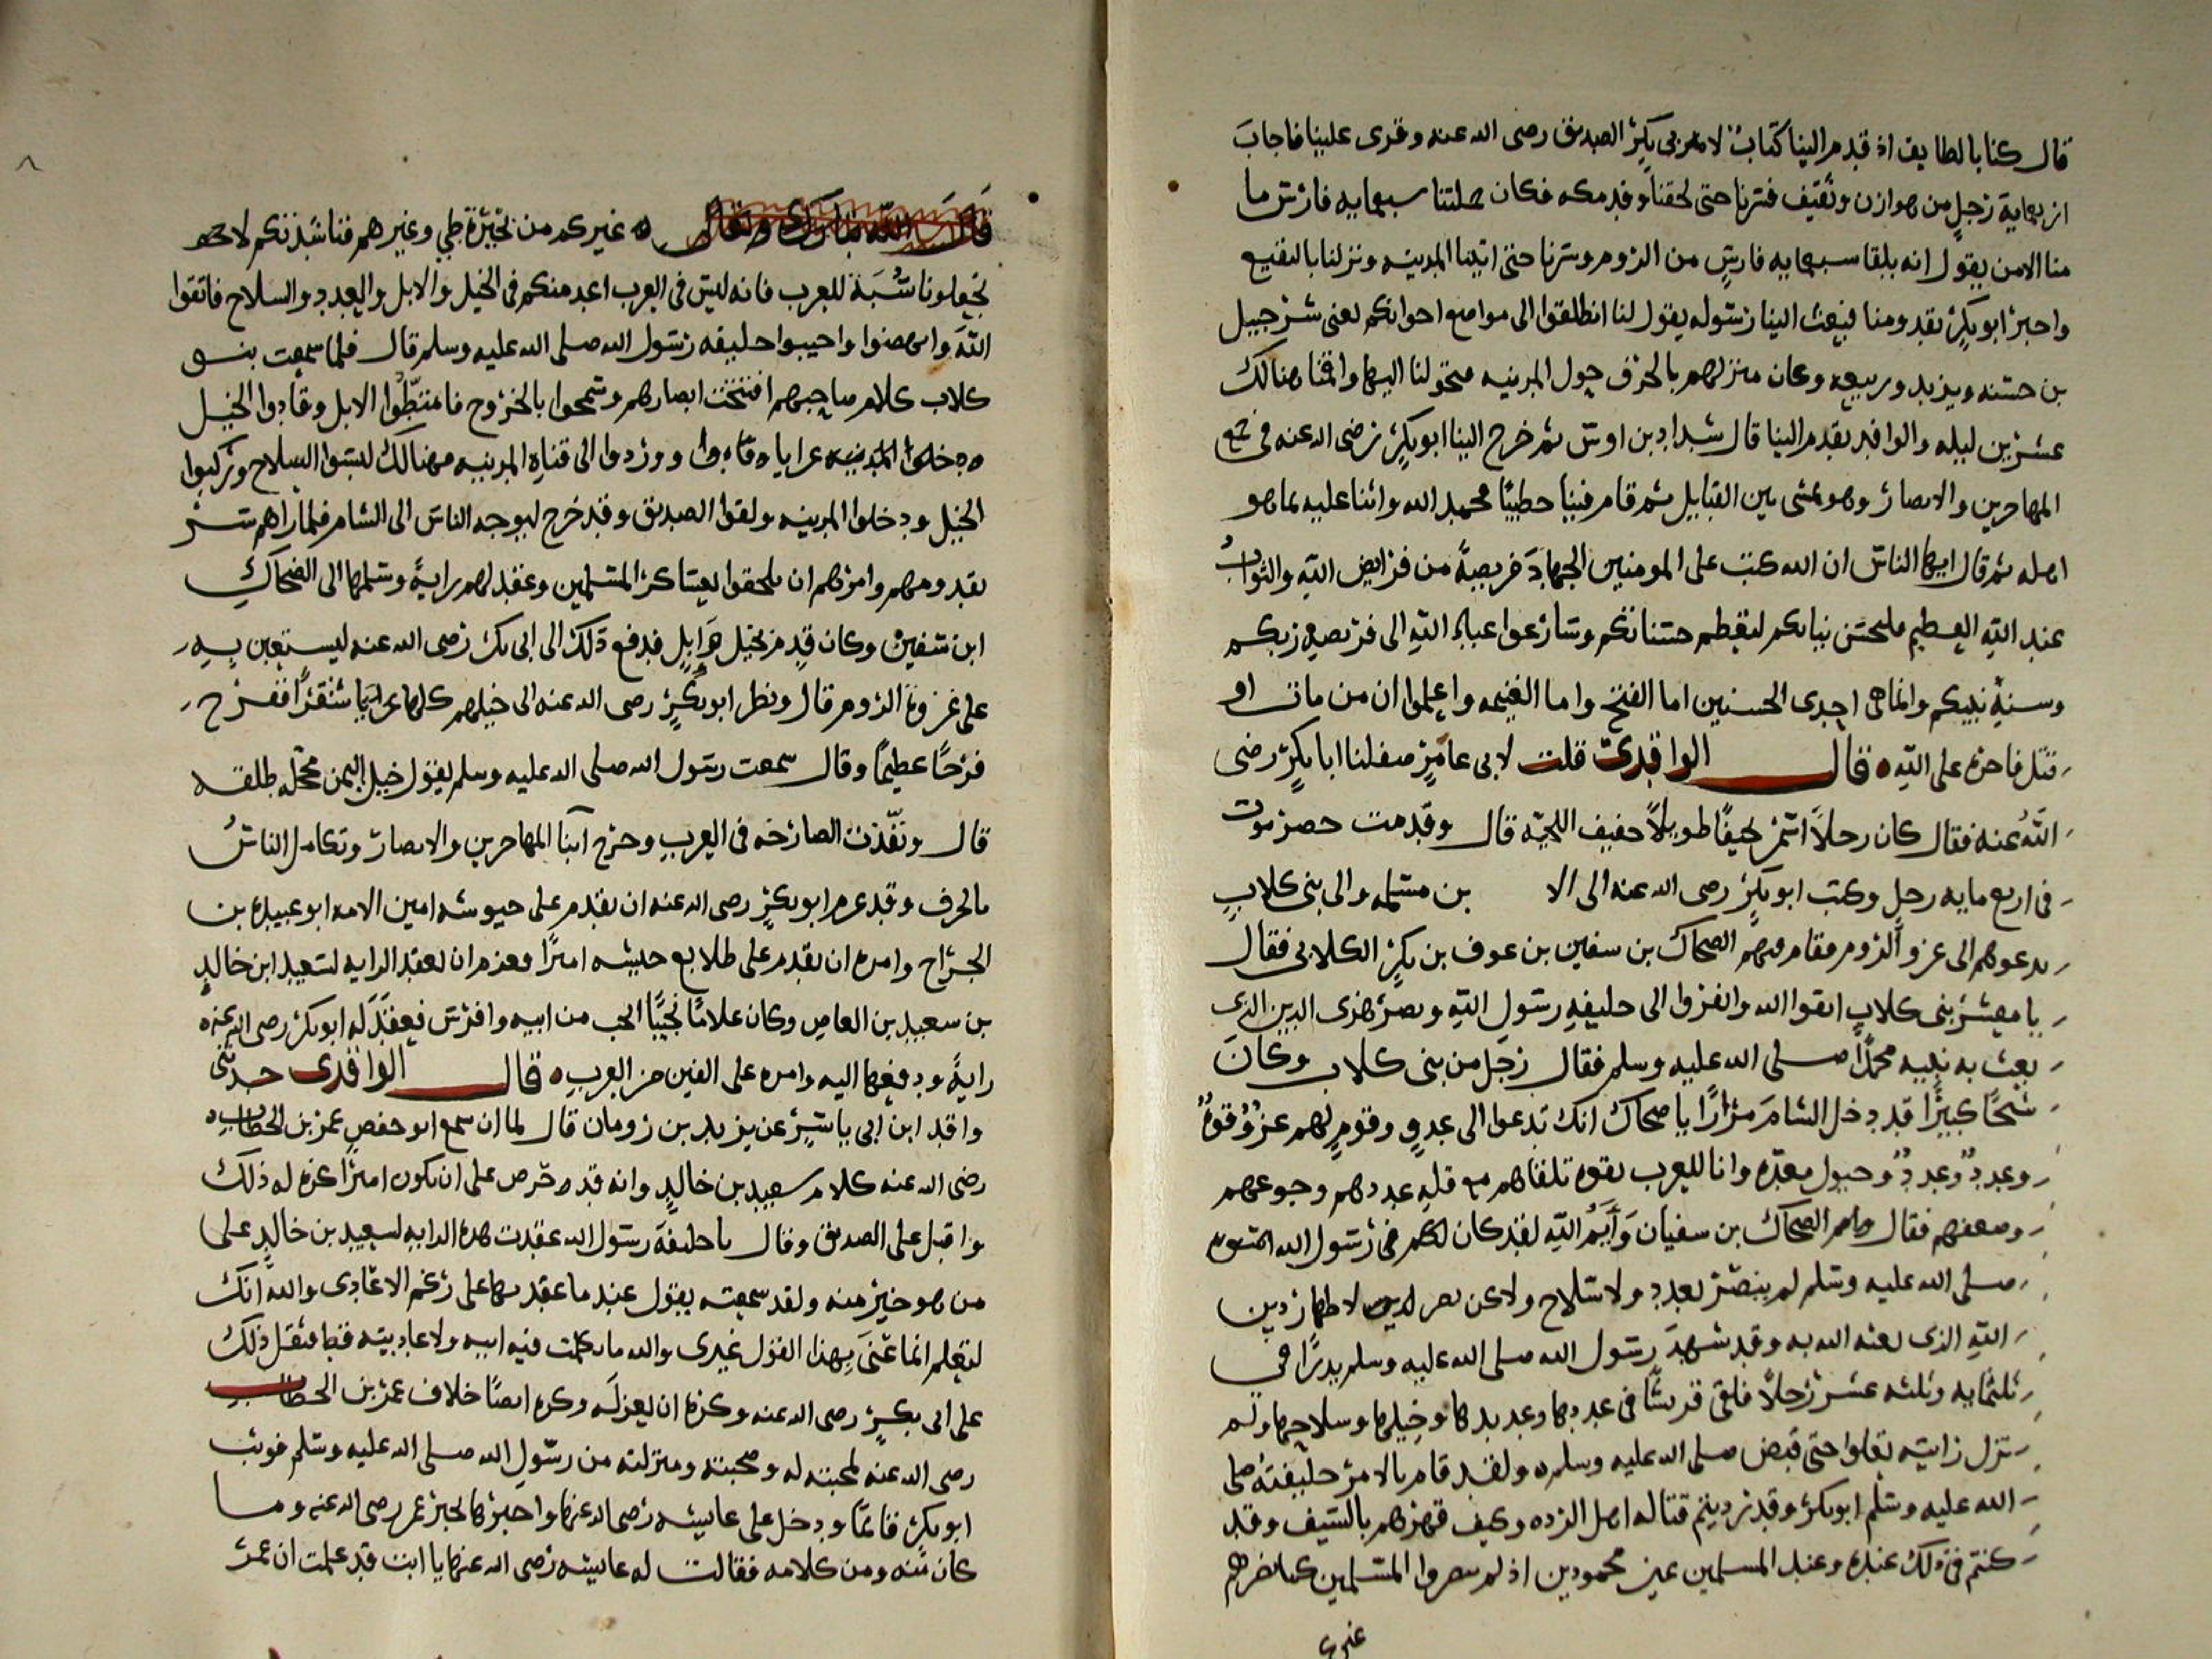 قال كنا بالطايف اذ قدم الينا كتاب لابي بكر الصديق رضى الله عنه وقرى علينا فاجاب
اربعماية رجل من هوازن وثقيف فسرنا حتى لحقنا وفد مكه فكان جملتنا سبعمايه فارس ما
منا الا من يقول انه يلقا سبعمايه فارس من الروم وسرنا حتى اتينا المدينه ونزلنا بالبقيع
واخبر ابو بكر بقدومنا فبعث الينا رسوله يقول لنا انطلقوا الى مواضع اخوانكم لعنى شرحبيل
بن حسنه ويزيد وربيعه وكان منزلهم بالجرف حول المدينه فتحولنا اليها واقمنا هنالك
عشرين ليله والوافد يقدم الينا قال شداد بن اوس ثم خرج الينا ابو بكر رضى الله عنه في جمع
المهاجرين والانصار وهو يمشى بين القبايل ثم قام فينا خطيبًا فحمد الله واثنا عليه بما هو
اهله ثم قال ايها الناس ان الله كتب على المومنين الجهاد فريضةً من فرايض الله والثواب
عند الله العظيم فلتحسن نياتكم لتعظم حسناتكم وسارعوا عباد الله الى فريضه ربكم
وسنة نبيكم وانما هى احدى الحسنيين اما الفتح واما الغنيمه واعلموا ان من مات او
قتل فاجره على الله ه قال الواقدى قلت لابى عامر صف لنا ابا بكر رضى
الله عنه فقال كان رجلاً اسمر نحيفًا طويلاً خفيف اللحيه قال وقدمت حضرموت
فى اربع مايه رجل وكتب ابو بكر رضى الله عنه الى الا بن مسلمه والى بنى كلاب
يدعوهم الى غزو الروم فقام فيهم الضحاك بن سفين بن عوف بن بكر الكلابى فقال
يا معشر بنى كلاب اتقوا الله وانفروا الى خليفه رسول الله ونصر هذى الدين الذى
بعث به نبيه محمدًا صلى الله عليه وسلم فقال رجل من بنى كلاب وكان
شيخًا كبيرًا قد دخل الشام مرارًا يا ضحاك انك تدعوا الى عدوٍ وقومٍ لهم عز وقوه
وعدد وعدد وخيول معده وانا للعرب بقوه تلقاهم مع قله عددهم وجوعهم
وضعفهم فقال لهم الضحاك بن سفيان وايم الله لقد كان لكم فى رسول الله اسوه
صلى الله عليه وسلم لم ينصر بعدد ولا سلاح ولاكن نصر لاظهار دين
الله الذى بعثه الله به وقد شهد رسول الله صلى الله عليه وسلم بدرًا فى
ثلثمايه وثلثه عشر رجلاً فلقى قريشًا فى عددها وعديدها وخيلها وسلاحها ولم
تزل رايته تعلوا حتى قبض صلى الله عليه وسلم ولقد قام بالامر خليفته صلى
الله عليه وسلم ابو بكر وقد رديتم قتاله اهل الرده وكيف قهرهم بالسيف وقد
كنتم فى ذلك عنده وعند المسلمين غير محمودين اذ لم تنصروا المسلمين كما نصرهم
غيركم
٨
قال الله تبارك وتعالى ه غيركم من نحيزة طي وغيرهم فناشدتكم لا
تجعلونا سُبَّة للعرب فانه ليس فى العرب اعد منكم فى الخيل والابل والعدد والسلاح فاتقوا
الله وانهضوا واجيبوا خليفه رسول الله صلى الله عليه وسلم قال فلما سمعت بنو
كلاب كلام صاحبهم انفتحت ابصارهم وسمحوا بالخروج فامتطوا الابل وقادوا الخيل
ودخلوا المدينه عرايا ووردوا الى قناة المدينه فهنالك لبسوا السلاح وركبوا
الخيل ودخلوا المدينه ولقوا الصديق وقد خرج ليوجه الناس الى الشام فلما راهم سر
بقدومهم وامرهم ان يلحقوا بعساكر المسلمين وعقد لهم رايةً وسلمها الى الضحاك
ابن سفين وكان قدم بخيل وابل فدفع ذلك الى ابى بكر رضى الله عنه ليستعين به
على غزوة الروم قال ونظر ابو بكر رضى الله عنه الى خيلهم كلها عرابًا شقرًا ففرح
فرحًا عظيمًا وقال سمعت رسول الله صلى الله عليه وسلم يقول خيل اليمن محجله طلقه
قال ونفذت الصارخه فى العرب وخرج ابنا المهاجرين والانصار وتكامل الناس
بالجرف وقد عزم ابو بكر رضى الله عنه ان يقدم على جيوشه امين الامه ابو عبيده بن
الجراح وامره ان يقدم على طلايع جيشه اميرًا فعزم ان يعقد الرايه لسعيد ابن خالد
بن سعيد بن العاص وكان غلامًا نجيبًا انجب من ابيه وافرس فعقد له ابو بكر رضى الله عنه
رايةً ودفعها اليه وامره على الفين من العرب ه قال الواقدى حدثنى
واقد ابن ابى ياسر عن يزيد بن رومان قال لما ان سمع ابو حفص عمر بن الخطاب
رضى الله عنه كلام سعيد بن خالد وانه قد حرص على ان يكون اميرًا كره له ذلك
واقبل على الصديق وقال يا خليفة رسول الله عقدت هذه الرايه لسعيد بن خالد على
من هو خير منه ولقد سمعته يقول عند ما عقدتها على رغم الاعادى والله انك
لتعلم انما عنى بهذا القول غيرى والله ما تكلمت فيه ابيه ولا عاديته قط فثقل ذلك
على ابى بكر رضى الله عنه وكره ان يعزله وكره ايضًا خلاف عمر بن الخطاب
رضى الله عنه لمحبته له وصحبته ومنزلته من رسول الله صلى الله عليه وسلم فوثب
ابو بكر قايمًا ودخل على عايشه رضى الله عنها واخبرها بخبر عمر رضى الله عنه وما
كان منه ومن كلامه فقالت له عايشه رضى الله عنها يا ابت قد علمت ان عمر